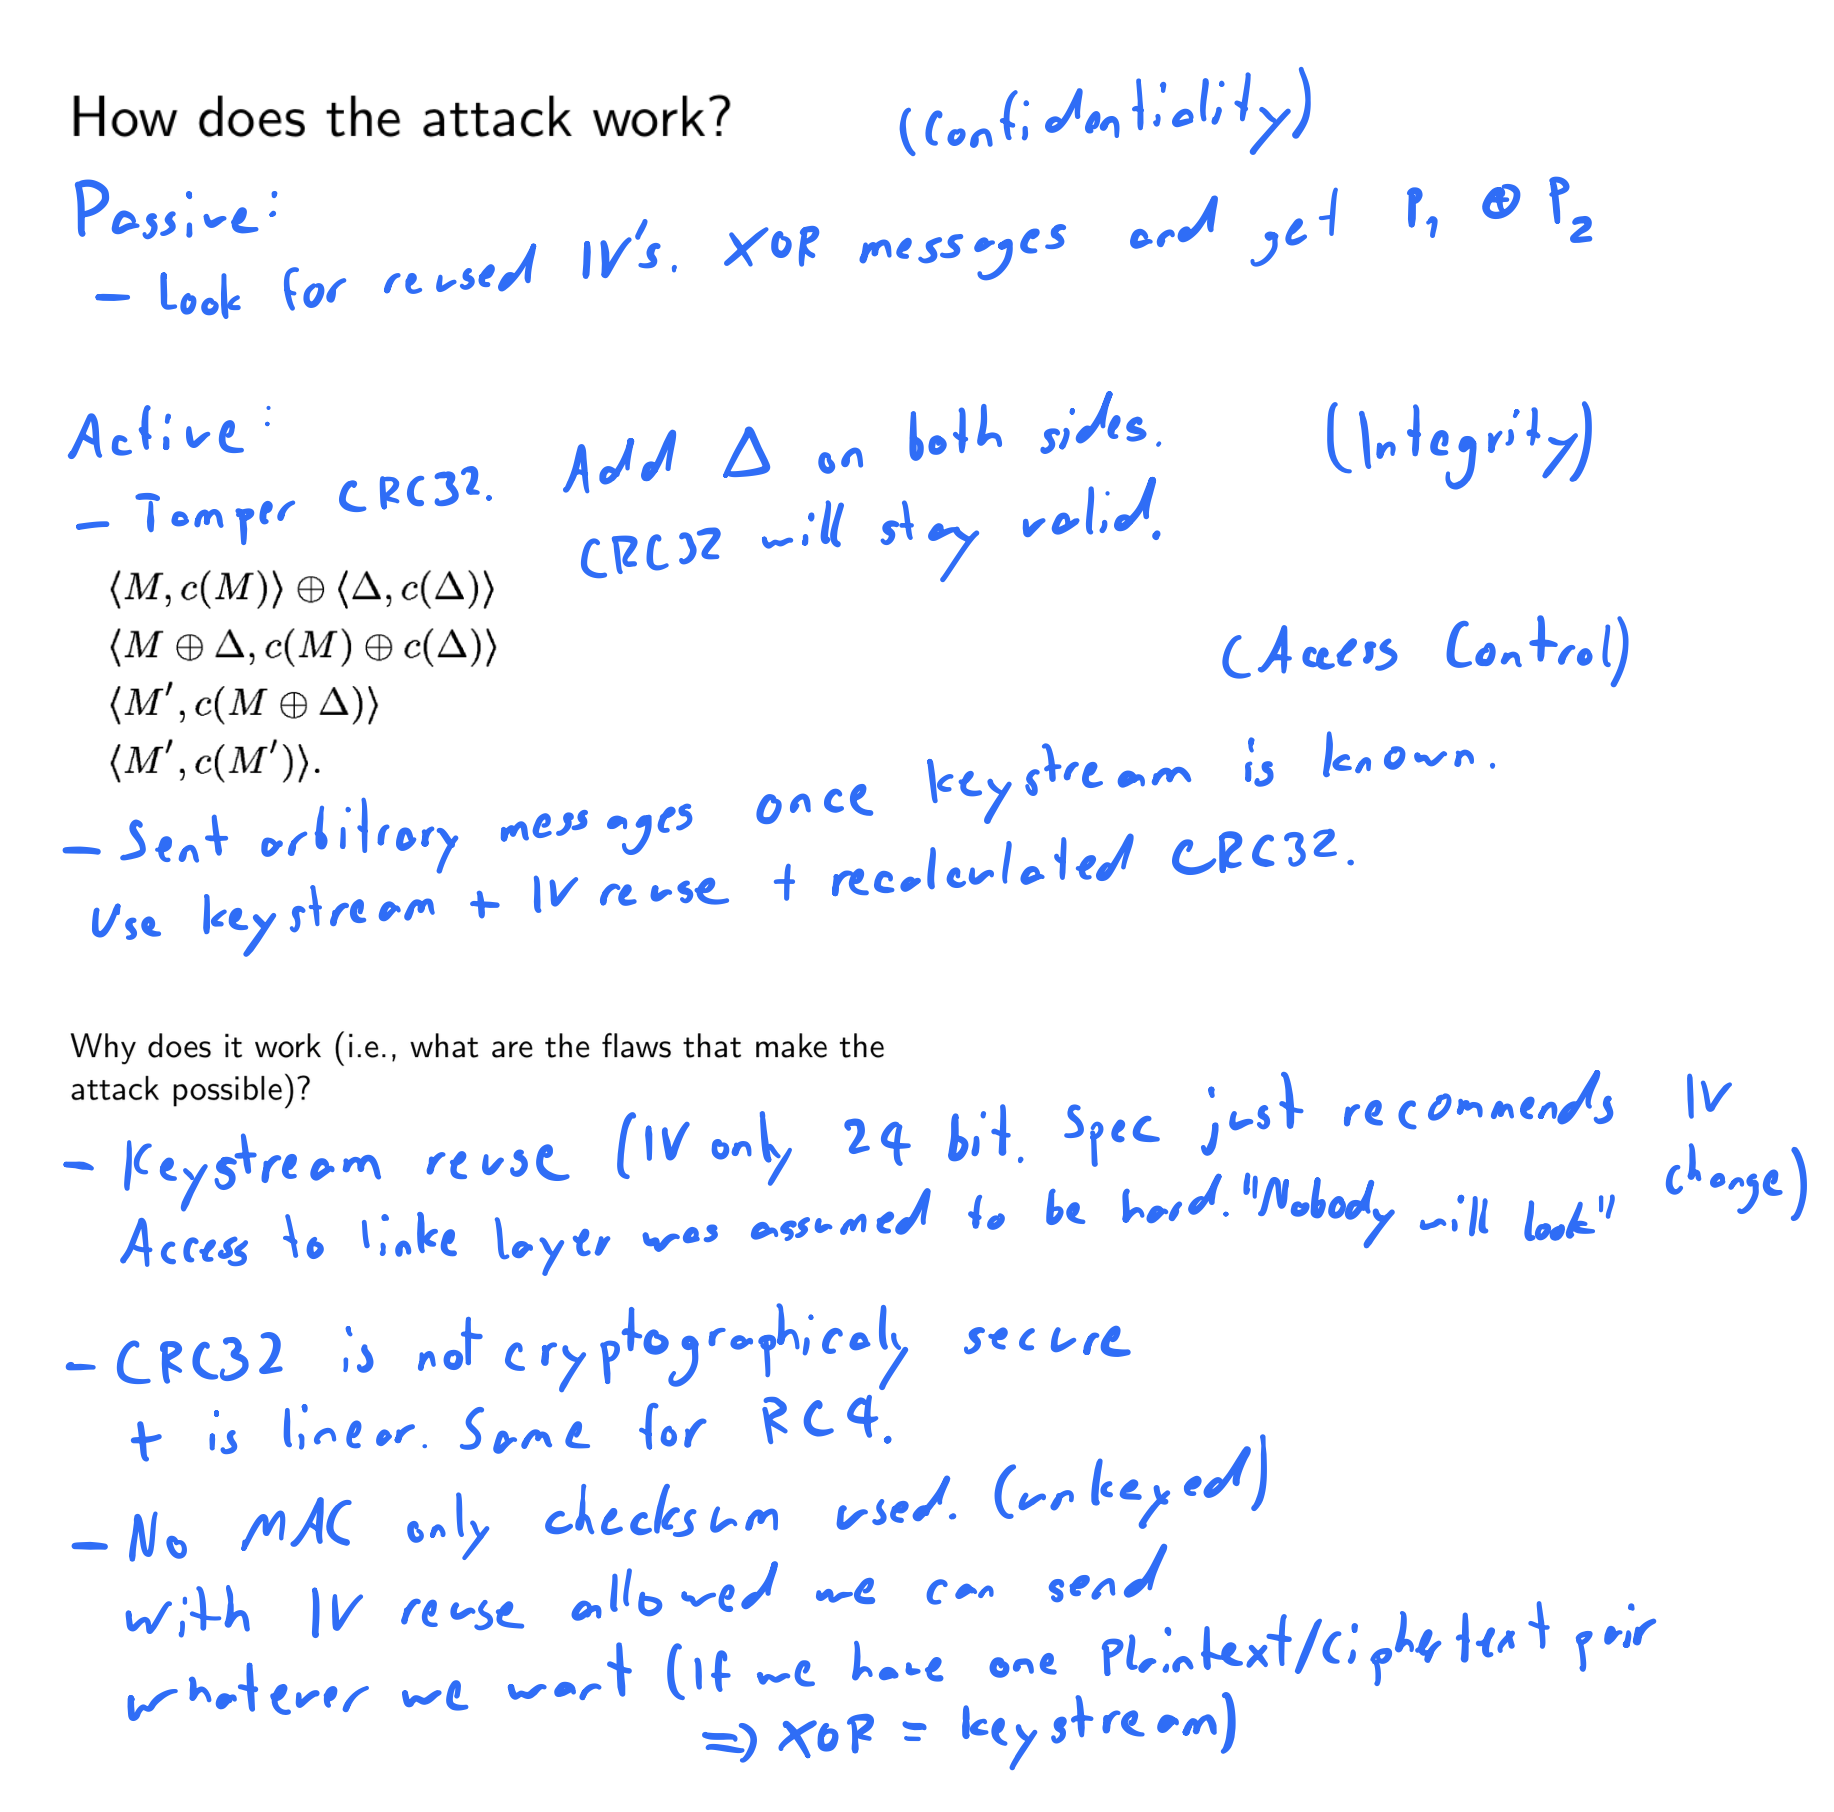 How does the attack work?
(Confidentiality)
Passive:
- Look for reused IV's. XOR messages and get P₁ ⊕ P₂
Active:
- Tamper CRC32. Add Δ on both sides. (Integrity)
CRC32 will stay valid.
⟨M, c(M)⟩ ⊕ ⟨Δ, c(Δ)⟩
⟨M ⊕ Δ, c(M) ⊕ c(Δ)⟩
⟨M′, c(M ⊕ Δ)⟩
⟨M′, c(M′)⟩.
(Access Control)
- Sent arbitrary messages once keystream is known.
Use keystream + IV reuse + recalculated CRC32.
Why does it work (i.e., what are the flaws that make the
attack possible)?
- Keystream reuse (IV only 24 bit. Spec just recommends IV
change)
Access to linke layer was assumed to be hard. "Nobody will look"
- CRC32 is not cryptographicaly secure
+ is linear. Same for RC4.
- No MAC only checksum used. (unkeyed)
with IV reuse allowed we can send
whatever we want (If we have one Plaintext/Ciphertext pair
=> XOR = keystream)